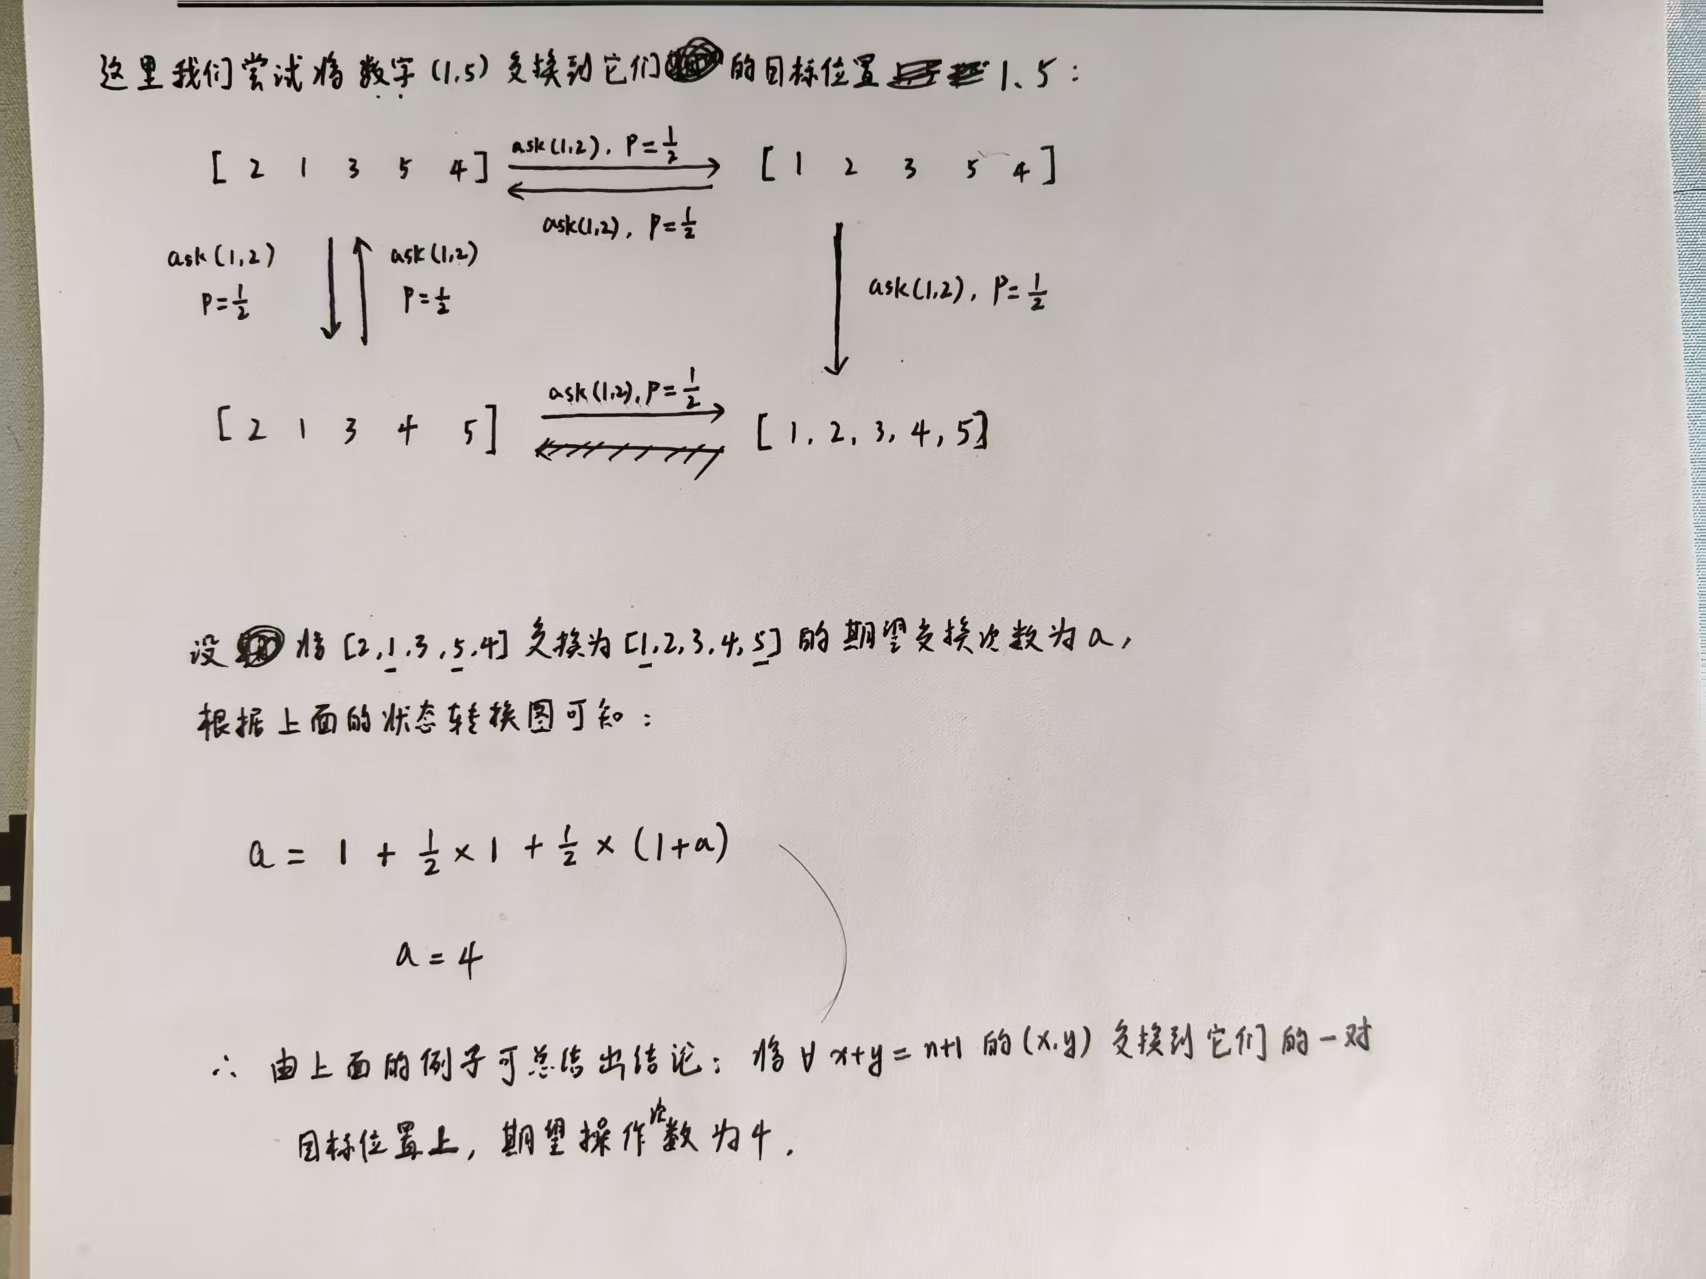 这里我们尝试将数字(1,5)交换到它们的目标位置1、5:
[ 2 1 3 5 4 ] ask(1,2), P=1/2 [ 1 2 3 5 4 ]
ask(1,2), P=1/2
ask(1,2) P=1/2 ask(1,2) P=1/2 ask(1,2), P=1/2
ask(1,2), P=1/2
[ 2 1 3 4 5 ] [ 1, 2, 3, 4, 5 ]
设将[2,1,3,5,4]交换为[1,2,3,4,5]的期望交换次数为a,
根据上面的状态转换图可知:
a = 1 + 1/2 × 1 + 1/2 × (1+a)
a = 4
∴ 由上面的例子可总结出结论: 将∀x+y=n+1的(x,y)交换到它们的一对
目标位置上,期望操作次数为4.